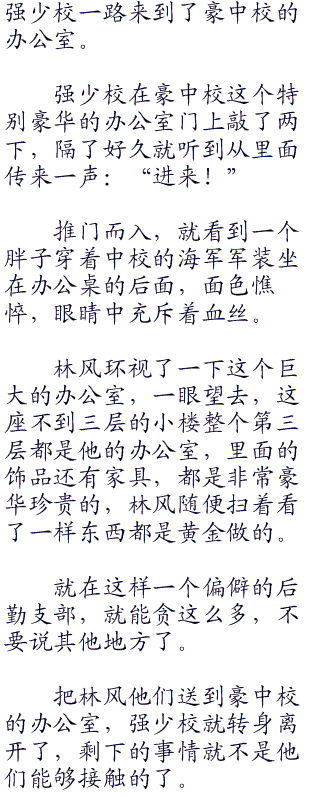 强少校一路来到了豪中校的
办公室。
强少校在豪中校这个特
别豪华的办公室门上敲了两
下，隔了好久就听到从里面
传来一声：“进来！”
推门而入，就看到一个
胖子穿着中校的海军军装坐
在办公桌的后面，面色憔
悴，眼睛中充斥着血丝。
林风环视了一下这个巨
大的办公室，一眼望去，这
座不到三层的小楼整个第三
层都是他的办公室，里面的
饰品还有家具，都是非常豪
华珍贵的，林风随便扫着看
了一样东西都是黄金做的。
就在这样一个偏僻的后
勤支部，就能贪这么多，不
要说其他地方了。
把林风他们送到豪中校
的办公室，强少校就转身离
开了，剩下的事情就不是他
们能够接触的了。